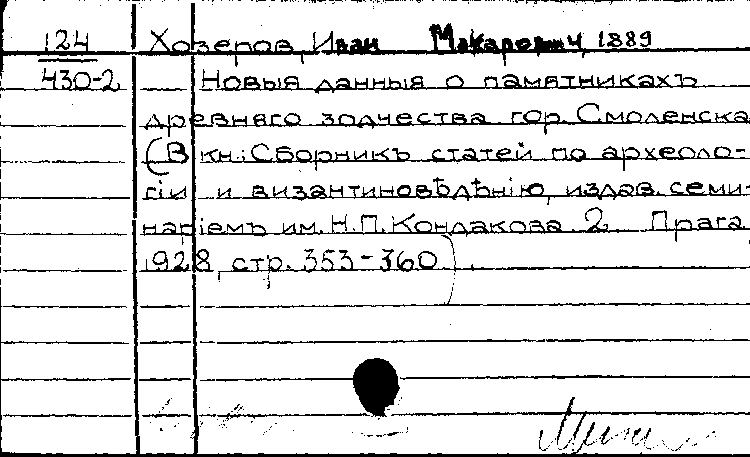 124 Хозеров, Иван Макарович, 1889
430-2 Новыя данныя о памятникахъ
древняго зодчества гор. Смоленска
(В кн.: Сборникъ статей по археоло-
гіи и византиновѣдѣнію, издав. семи-
наріемъ им. Н.П. Кондакова 2. Прага,
1928, стр. 353-360)